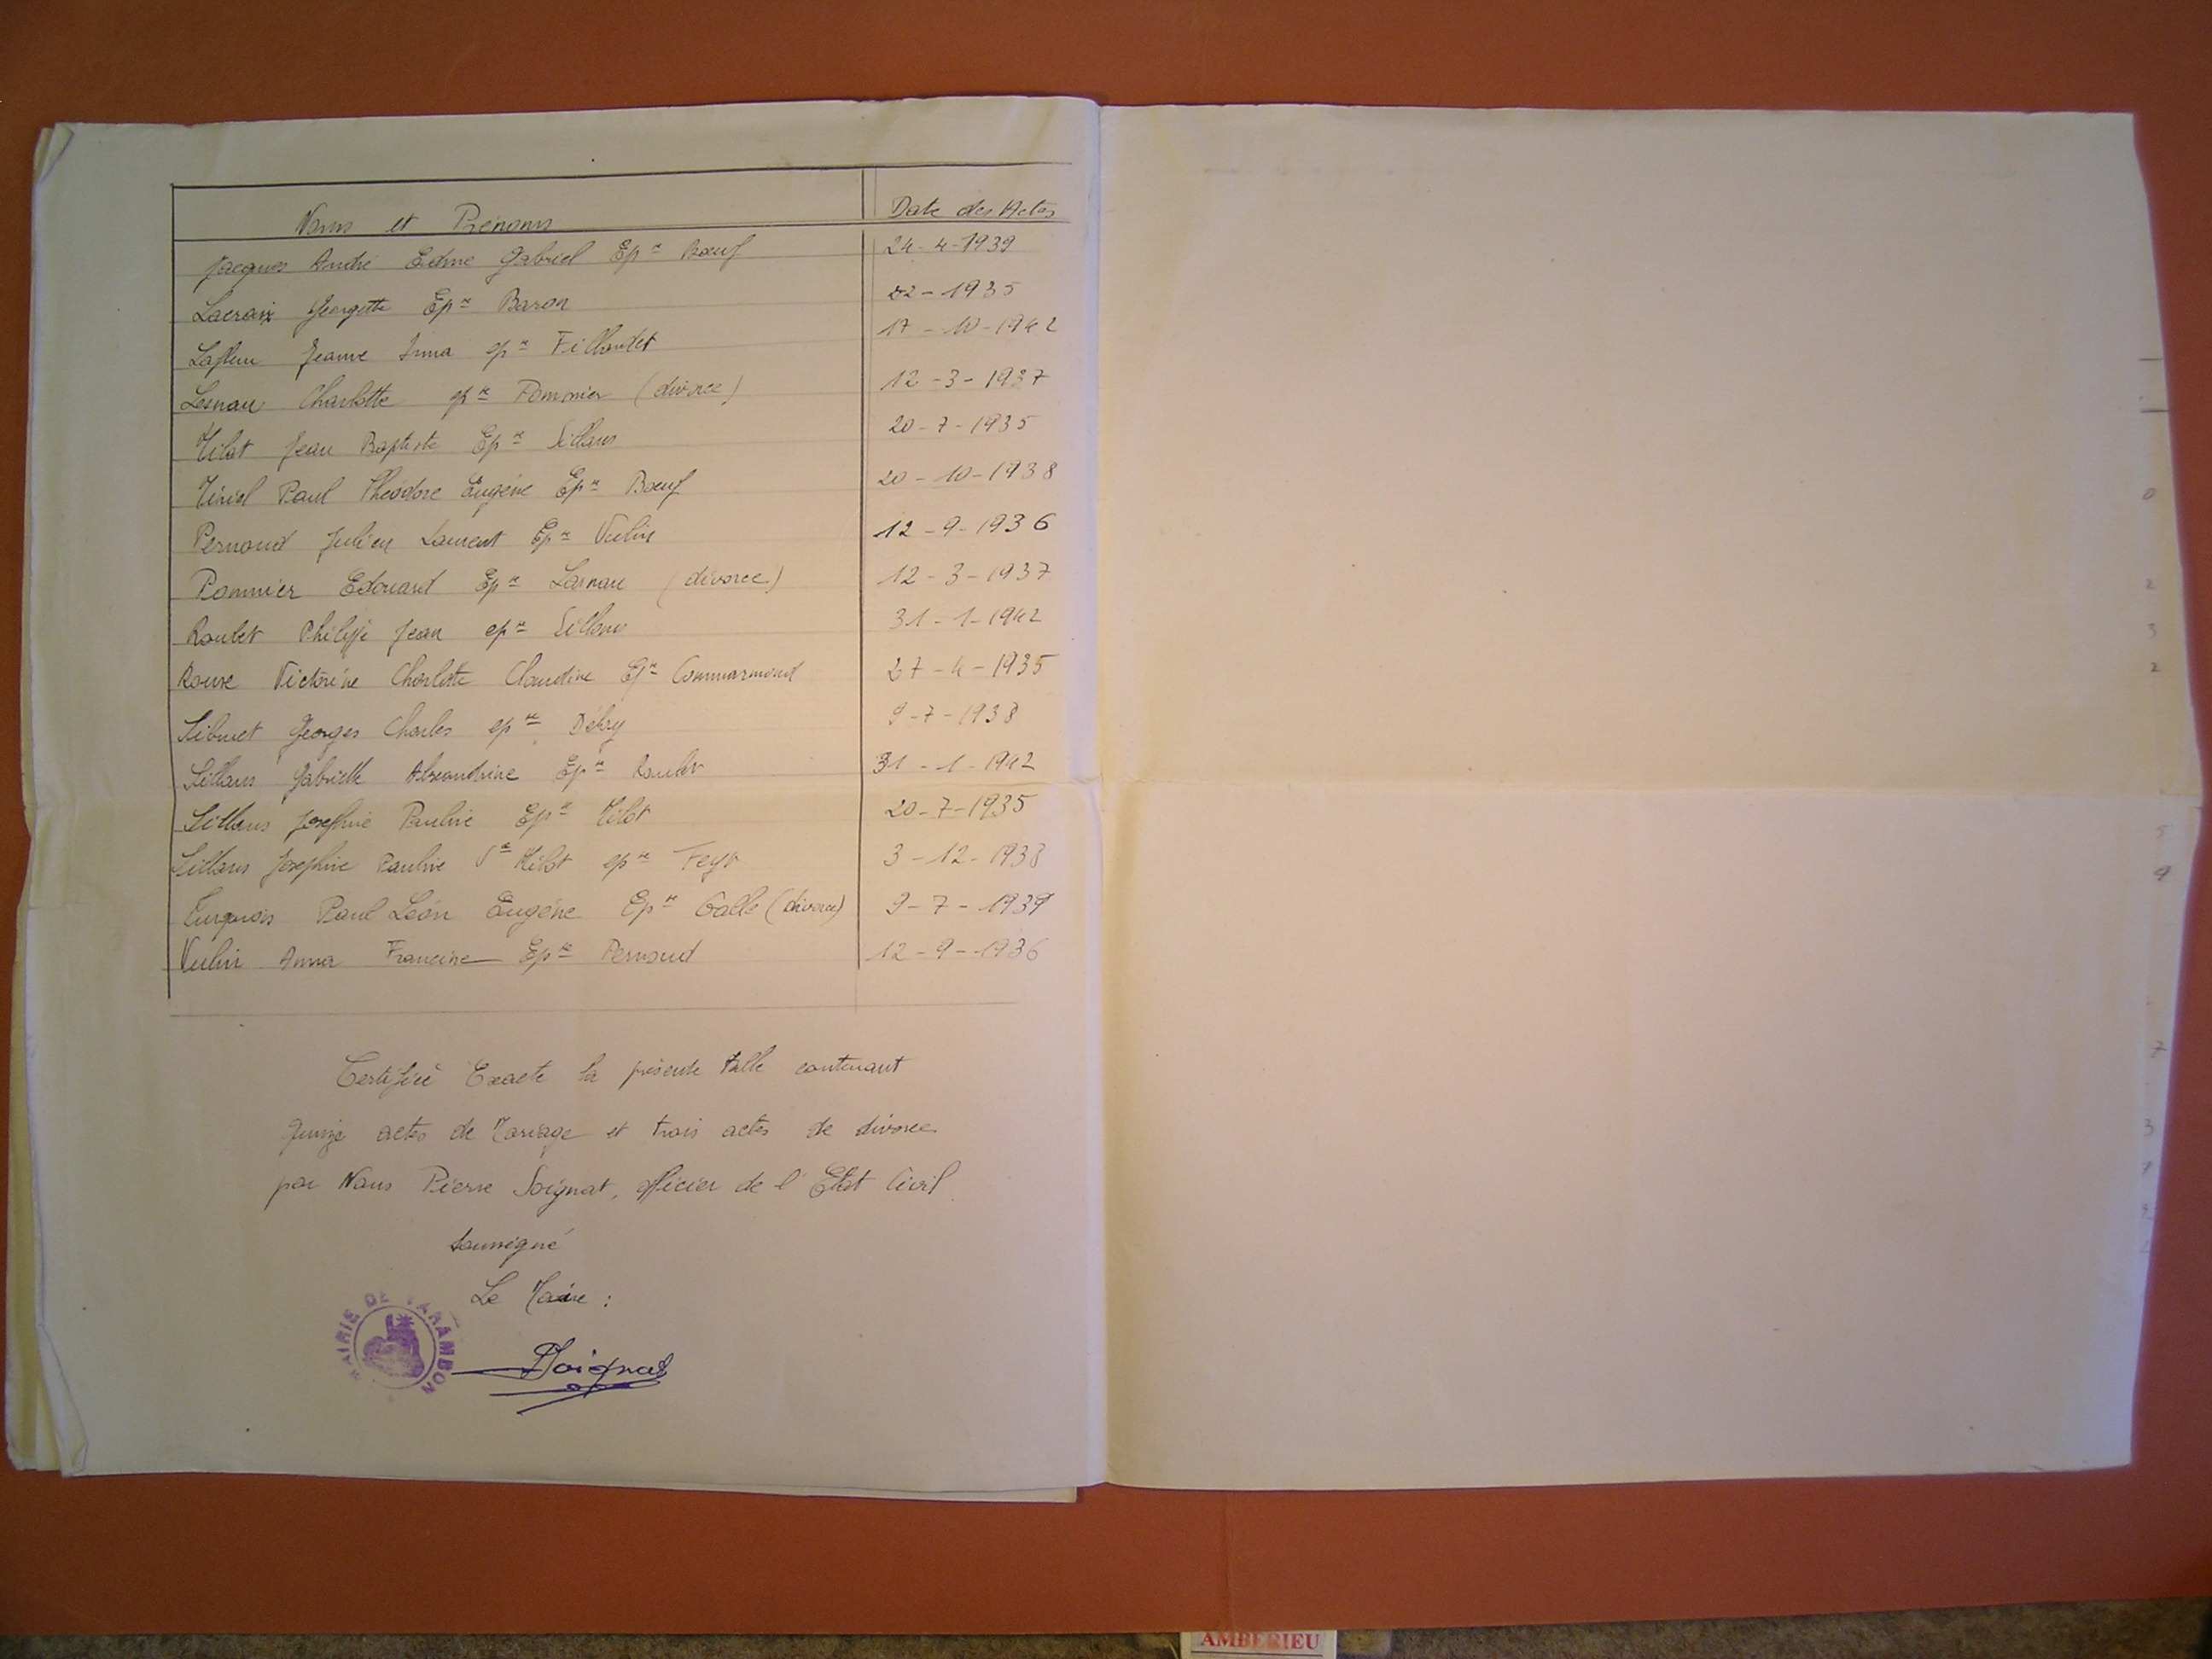 Noms et Prénoms Date des Actes
Jacques André Edme Gabriel Epx Bœuf 24-4-1939
Lacroix Georgette Epx Baron 22-1935
Lafleur Jeanne Irma epx Fillardet 17-10-1942
Lesnau Charlotte epx Pommier (divorce) 12-3-1937
Milot Jean Baptiste Epx Sillans 20-7-1935
Paul Théodore Eugène Epx Bœuf 20-10-1938
Pernoud Julien Laurent Epx Vulin 12-9-1936
Pommier Edouard Epx Lesnau (divorce) 12-3-1937
Roulet Philippe Jean epx Sillans 31-1-1942
Victorine Charlotte Claudine Epx Commarmond 27-4-1935
Sibuet Georges Charles epx Débry 9-7-1938
Sillans Gabrielle Alexandrine Epx Roulet 31-1-1942
Sillans Joséphine Pauline Epx Milot 20-7-1935
Sillans Joséphine Pauline Vve Milot epx 3-12-1938
Turquois Paul Léon Eugène Epx Galle (divorce) 9-7-1939
Vulin Anna Francine Epx Pernoud 12-9-1936
Certifiée Exacte la présente table contenant
quinze actes de Mariage et trois actes de divorce
par Nous Pierre Soignat, officier de l'Etat Civil
soussigné
Le Maire :
MAIRIE DE VARAMBON
PSoignat
AMBERIEU